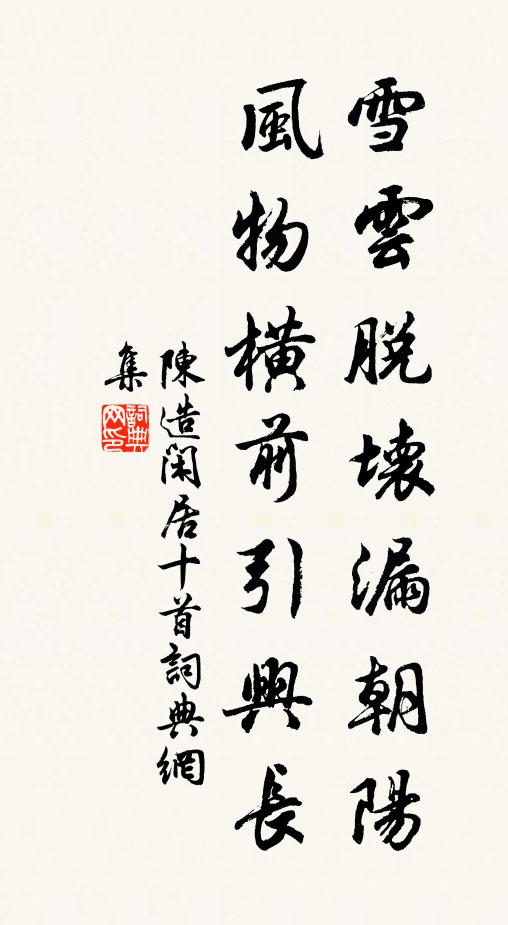 雪雲脱壞漏朝陽
風物橫前引興長
陳造閑居十首詞典網
集
詞典
网印